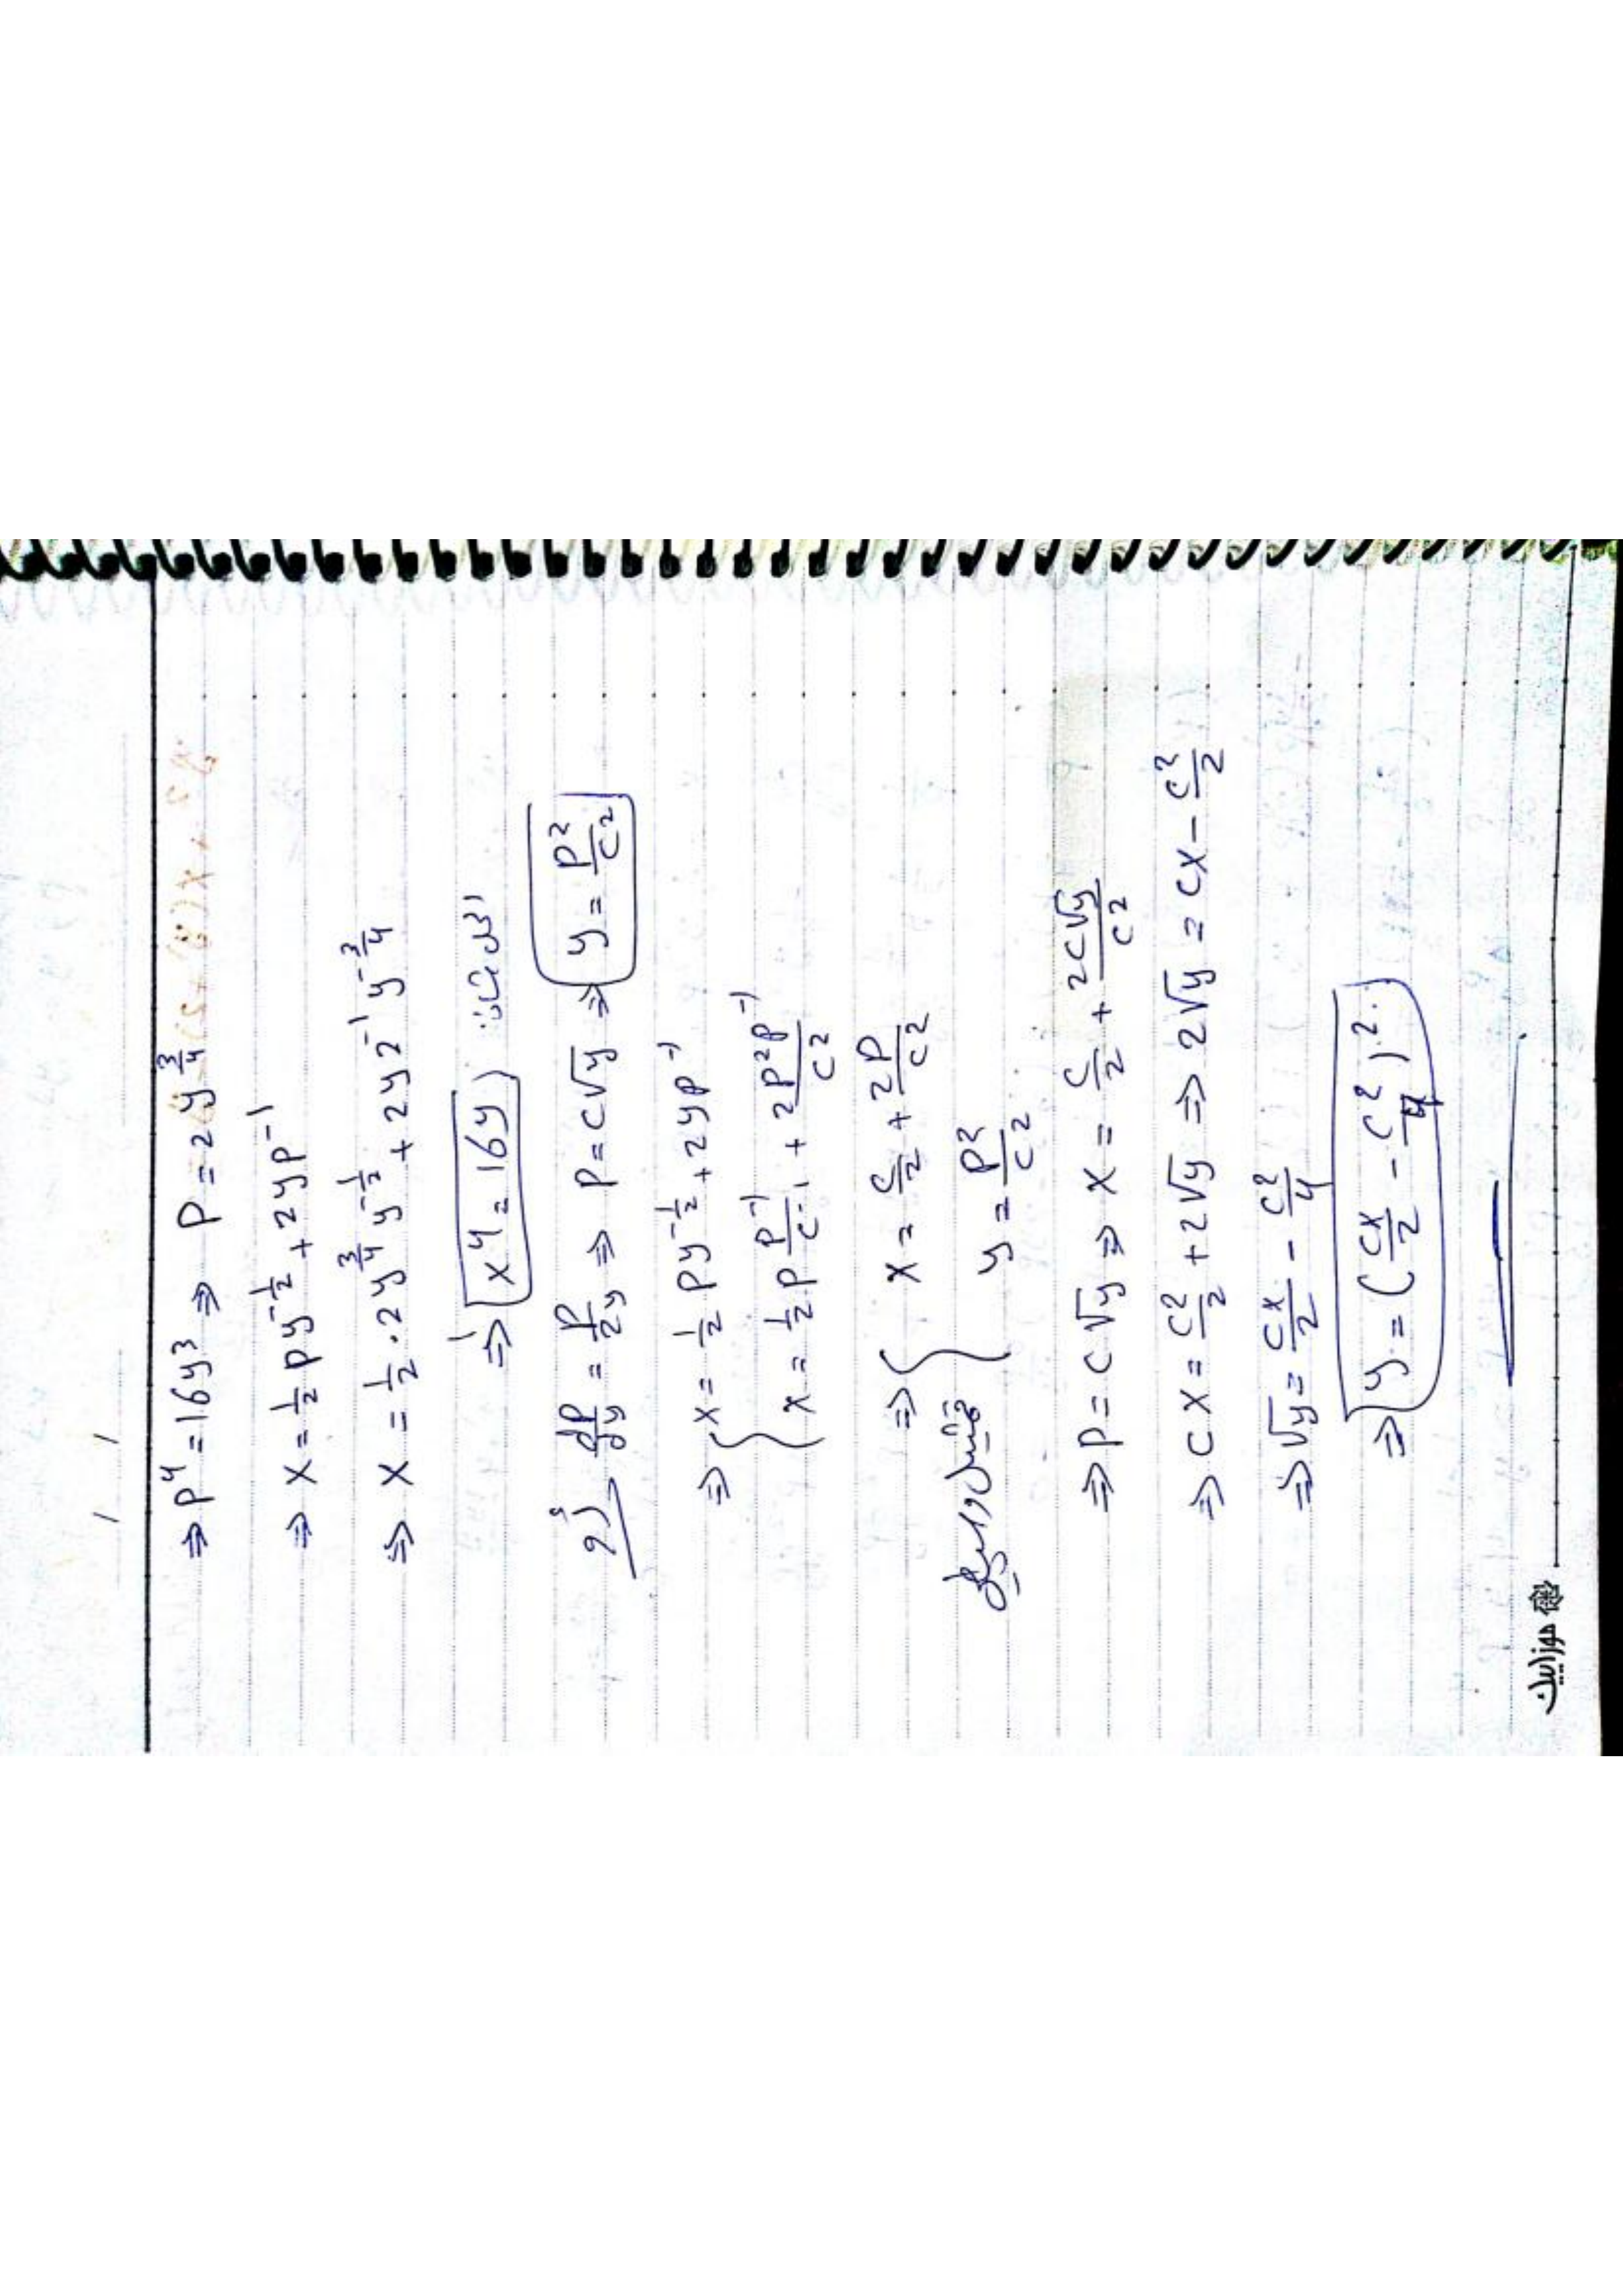 / /
⇒ P⁴ = 16y³ ⇒ P = 2y^(3/4)
⇒ x = 1/2 P y^(-1/2) + 2yP⁻¹
⇒ x = 1/2 · 2y^(3/4) y^(-1/2) + 2y2⁻¹ y^(-3/4)
⇒ x⁴ = 16y
dP/dy = P/2y ⇒ P = c√y ⇒ y = P²/c²
⇒ x = 1/2 P y^(-1/2) + 2yP⁻¹
x = 1/2 P P⁻¹/c⁻¹ + 2P²P⁻¹/c²
⇒ x = c/2 + 2P/c²
y = P²/c²
⇒ P = c√y ⇒ x = c/2 + 2c√y/c²
⇒ cx = c²/2 + 2√y ⇒ 2√y = cx - c²/2
⇒ √y = cx/2 - c²/4
⇒ y = (cx/2 - c²/4)².
موزاييك